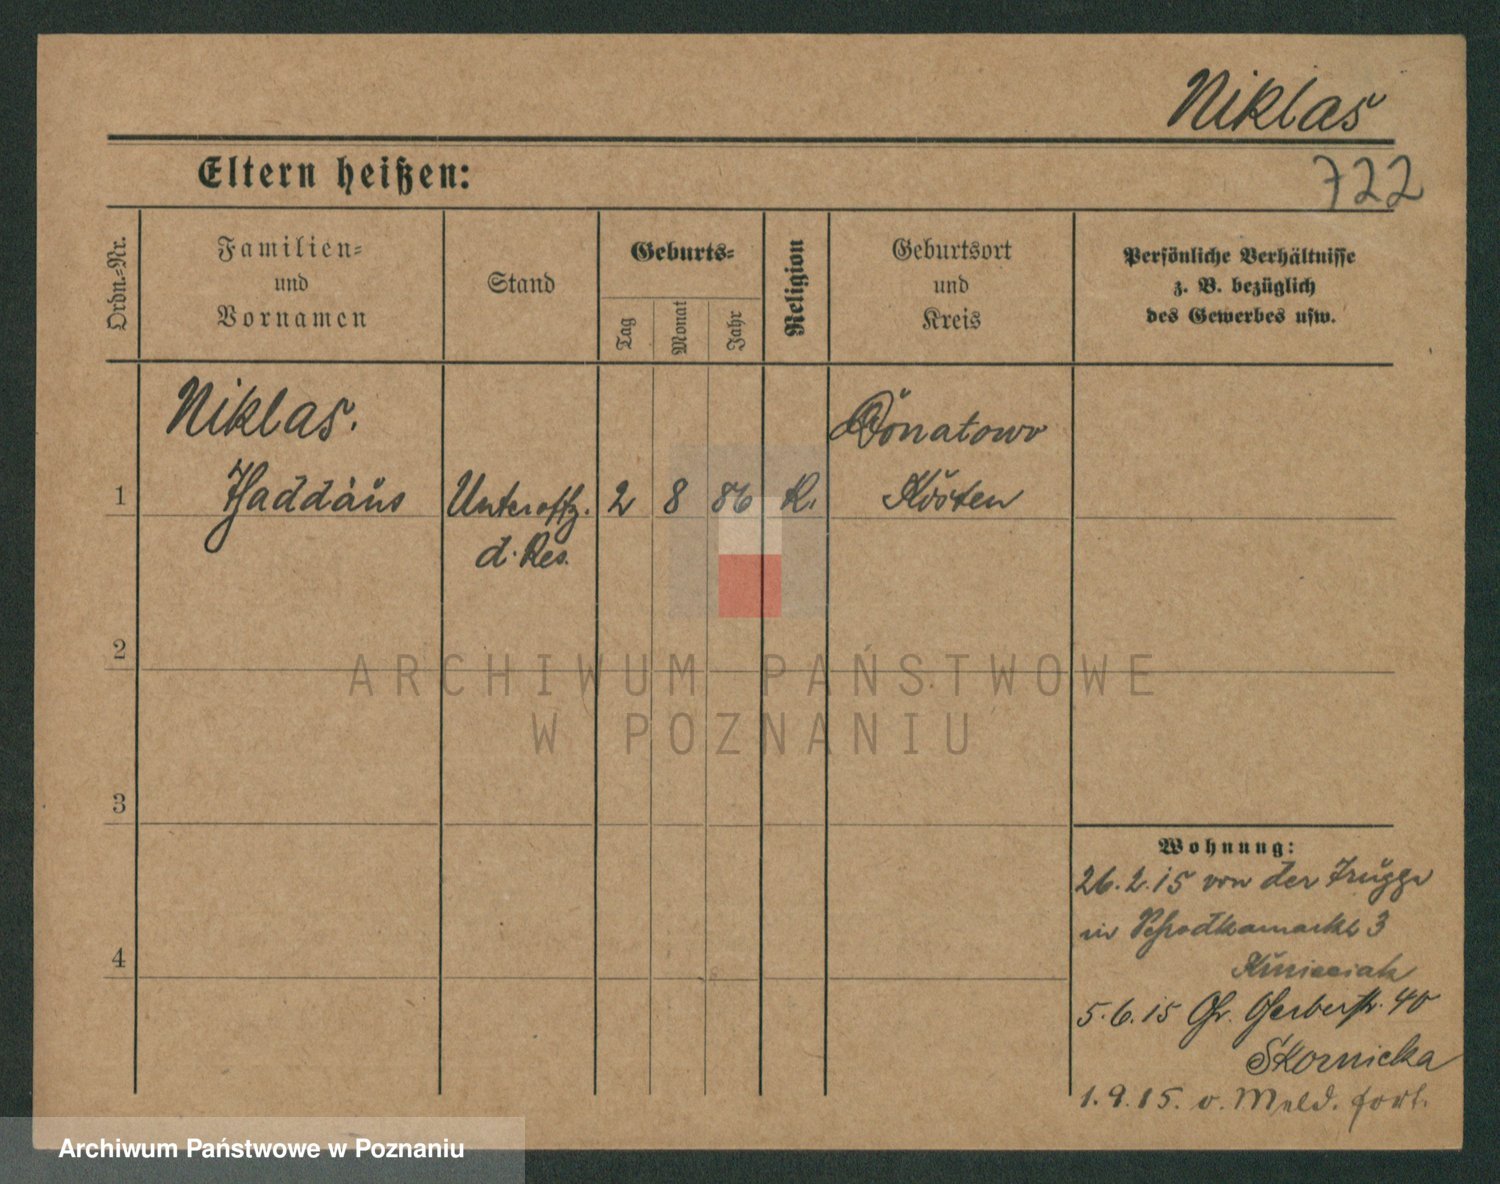 Niklas
Eltern heißen:
722
Ordn.-Nr.
Familien-
und
Vornamen
Stand
Geburts-
Tag
Monat
Jahr
Religion
Geburtsort
und
Kreis
Persönliche Verhältnisse
z. B. bezüglich
des Gewerbes usw.
Niklas.
Donatowo
1
Unteroffz. 2 8 86 K.
Kosten
d. Res.
2
ARCHIWUM PAŃSTWOWE
W POZNANIU
3
Wohnung:
26.2.15 von der
in 3
4
5.6.15 Gr. Gerberstr. 40
Skornicka
1.9.15. o. Meld. fort.
Archiwum Państwowe w Poznaniu